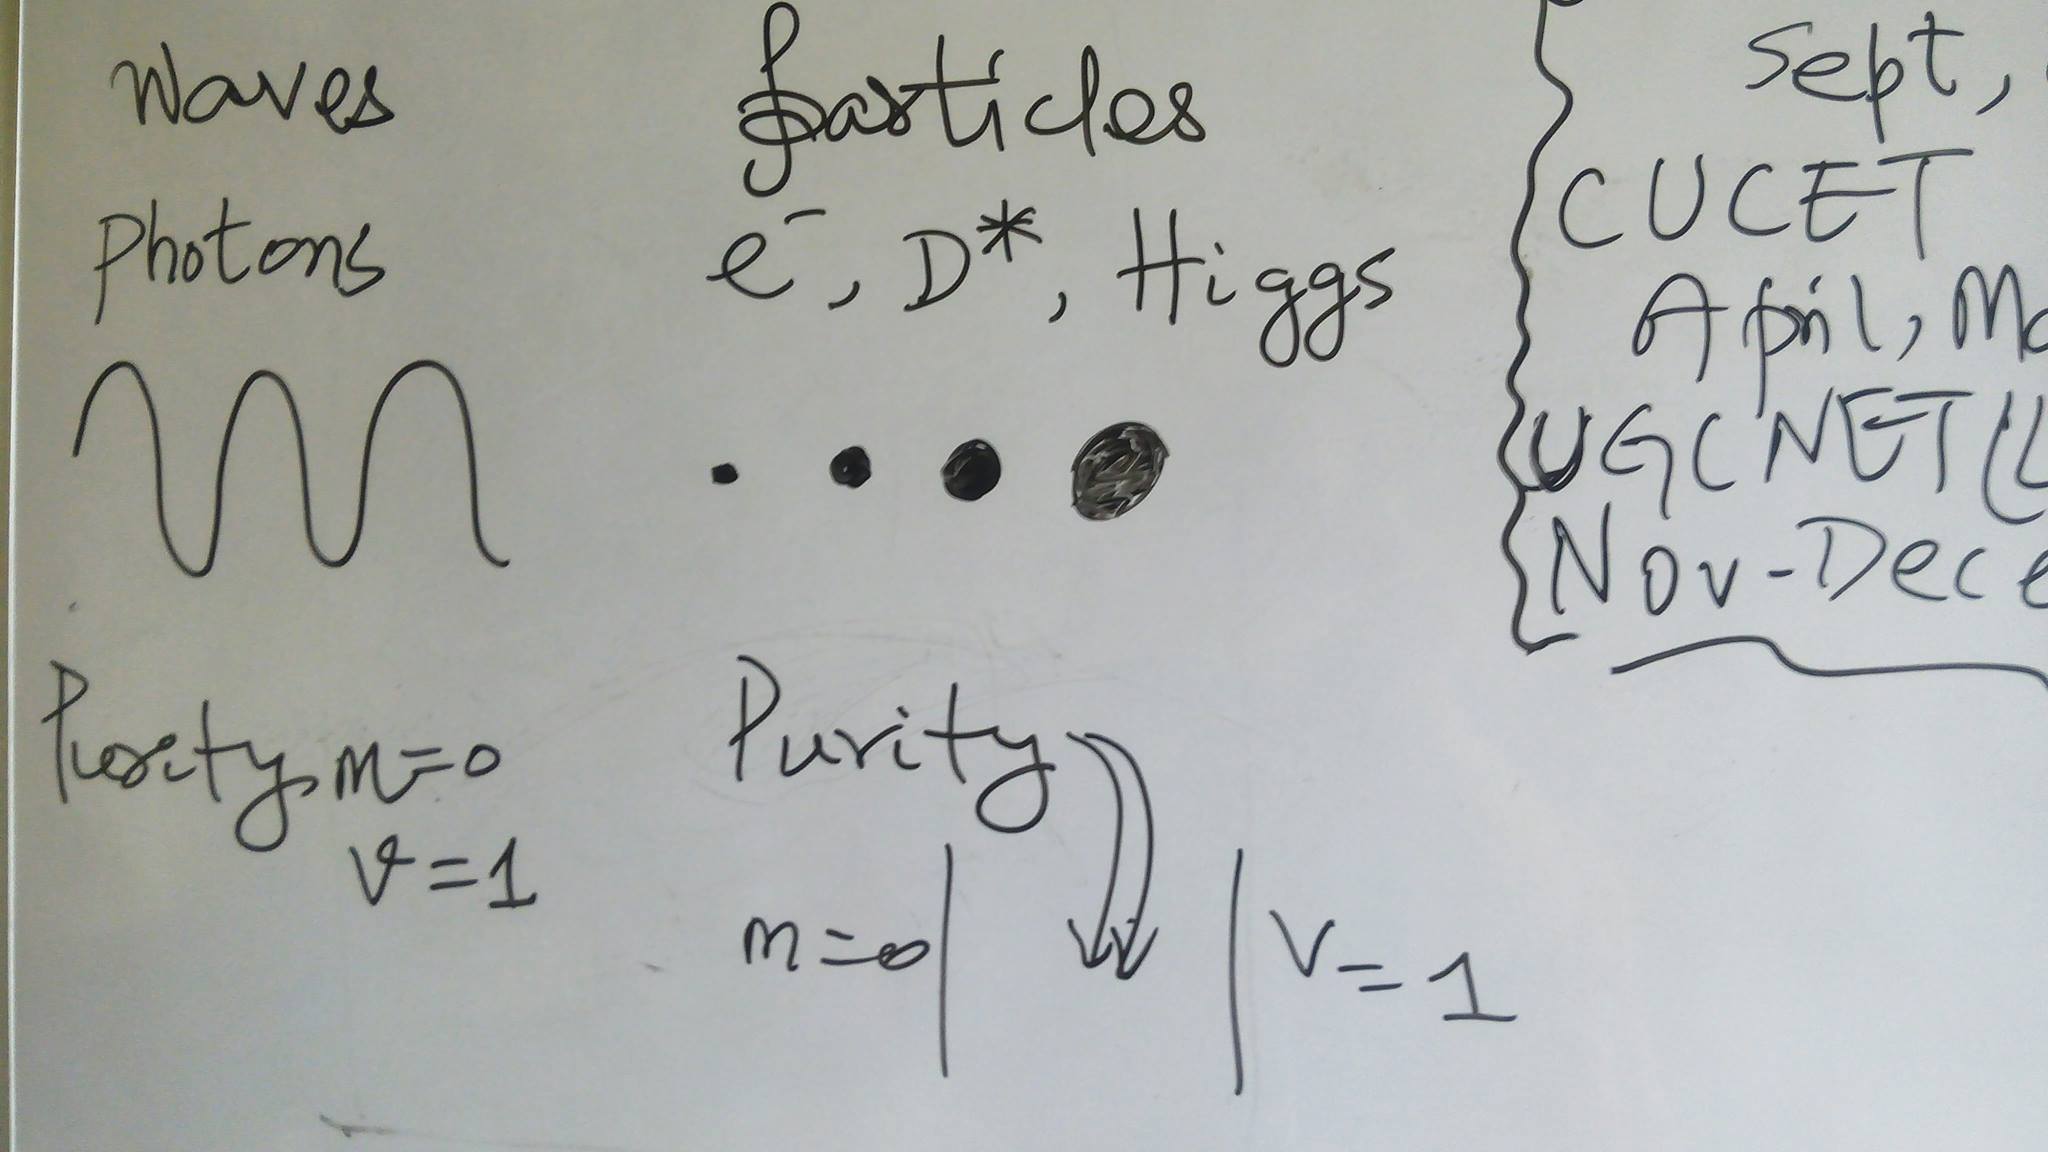 Waves
Photons
Purity, m=0
v=1
Particles
e⁻, D*, Higgs
Purity
m=0
v=1
Sept,
CUCET
April,
UGCNET